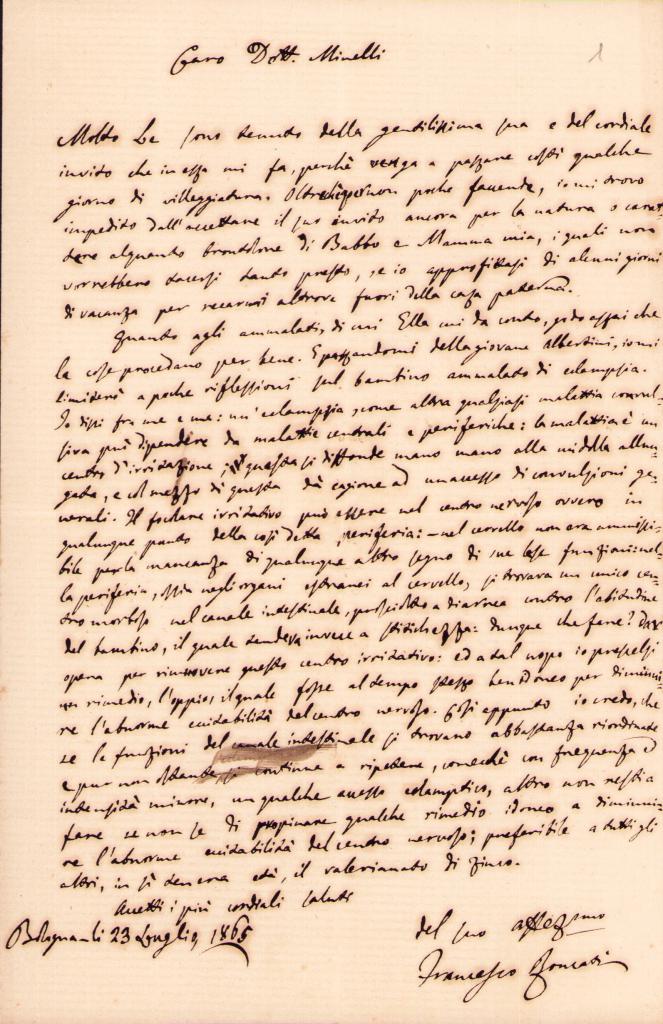 Caro Dott. Minelli
1
Molto Le sono tenuto della gentilissima sua e del cordiale
invito che in essa mi fa, perchè venga a passare costì qualche
giorno di villeggiatura. Oltredichè per non poche faccende, io mi trovo
impedito dall'accettare il suo invito ancora per la natura o carat=
tere alquanto brontolone di Babbo e Mamma mia, i quali non
vorrebbero tacersi tanto presto, se io approfittassi di alcuni giorni
di vacanza per recarmi altrove fuori della casa paterna.
Quanto agli ammalati, di cui Ella mi da conto, godo assai che
le cose procedano per bene. E passandomi della giovane Albertini, io mi
limiterò a poche riflessioni sul bambino ammalato di eclampsia.
Io dissi fra me e me: un'eclampsia, come altra qualsiasi malattia convul=
siva può dipendere da malattie centrali e periferiche: la malattia è un
centro d'irritazione; questa si diffonde mano mano alla midolla allun=
gata, e col mezzo di questa dà cagione ad un accesso di convulsioni ge=
nerali. Il focolare irritativo può essere nel centro nervoso ovvero in
qualunque punto della così detta periferia: – nel cervello non era ammissi=
bile per la mancanza di qualunque altro segno di sue lese funzioni: nel=
la periferia, ossia negli organi estranei al cervello, si trovava un unico cen=
tro morboso nel canale intestinale, proscioltto a diarrea contro l'abitudine
del bambino, il quale tendeva invece a stitichezza: dunque che fare? Dar
opera per rimuovere questo centro irritativo: ed a tal uopo io prescelsi
un rimedio, l'oppio, il quale fosse al tempo stesso ben idoneo per diminui=
re l'abnorme eccitabilità del centro nervoso. Così appunto io credo, che
se le funzioni del canale intestinale si trovano abbastanza riordinate
e pur non ostante, si continua a ripetere, comechè con frequenza ed
intensità minore, un qualche accesso eclamptico, altro non restia
fare se non se di propinare qualche rimedio idoneo a diminui=
re l'abnorme eccitabilità del centro nervoso; preferibile a tutti gli
altri, in sì tenera età, il valerianato di zinco.
Accetti i più cordiali saluti
del suo affezmo
Bologna li 23 Luglio, 1865
Francesco Roncati